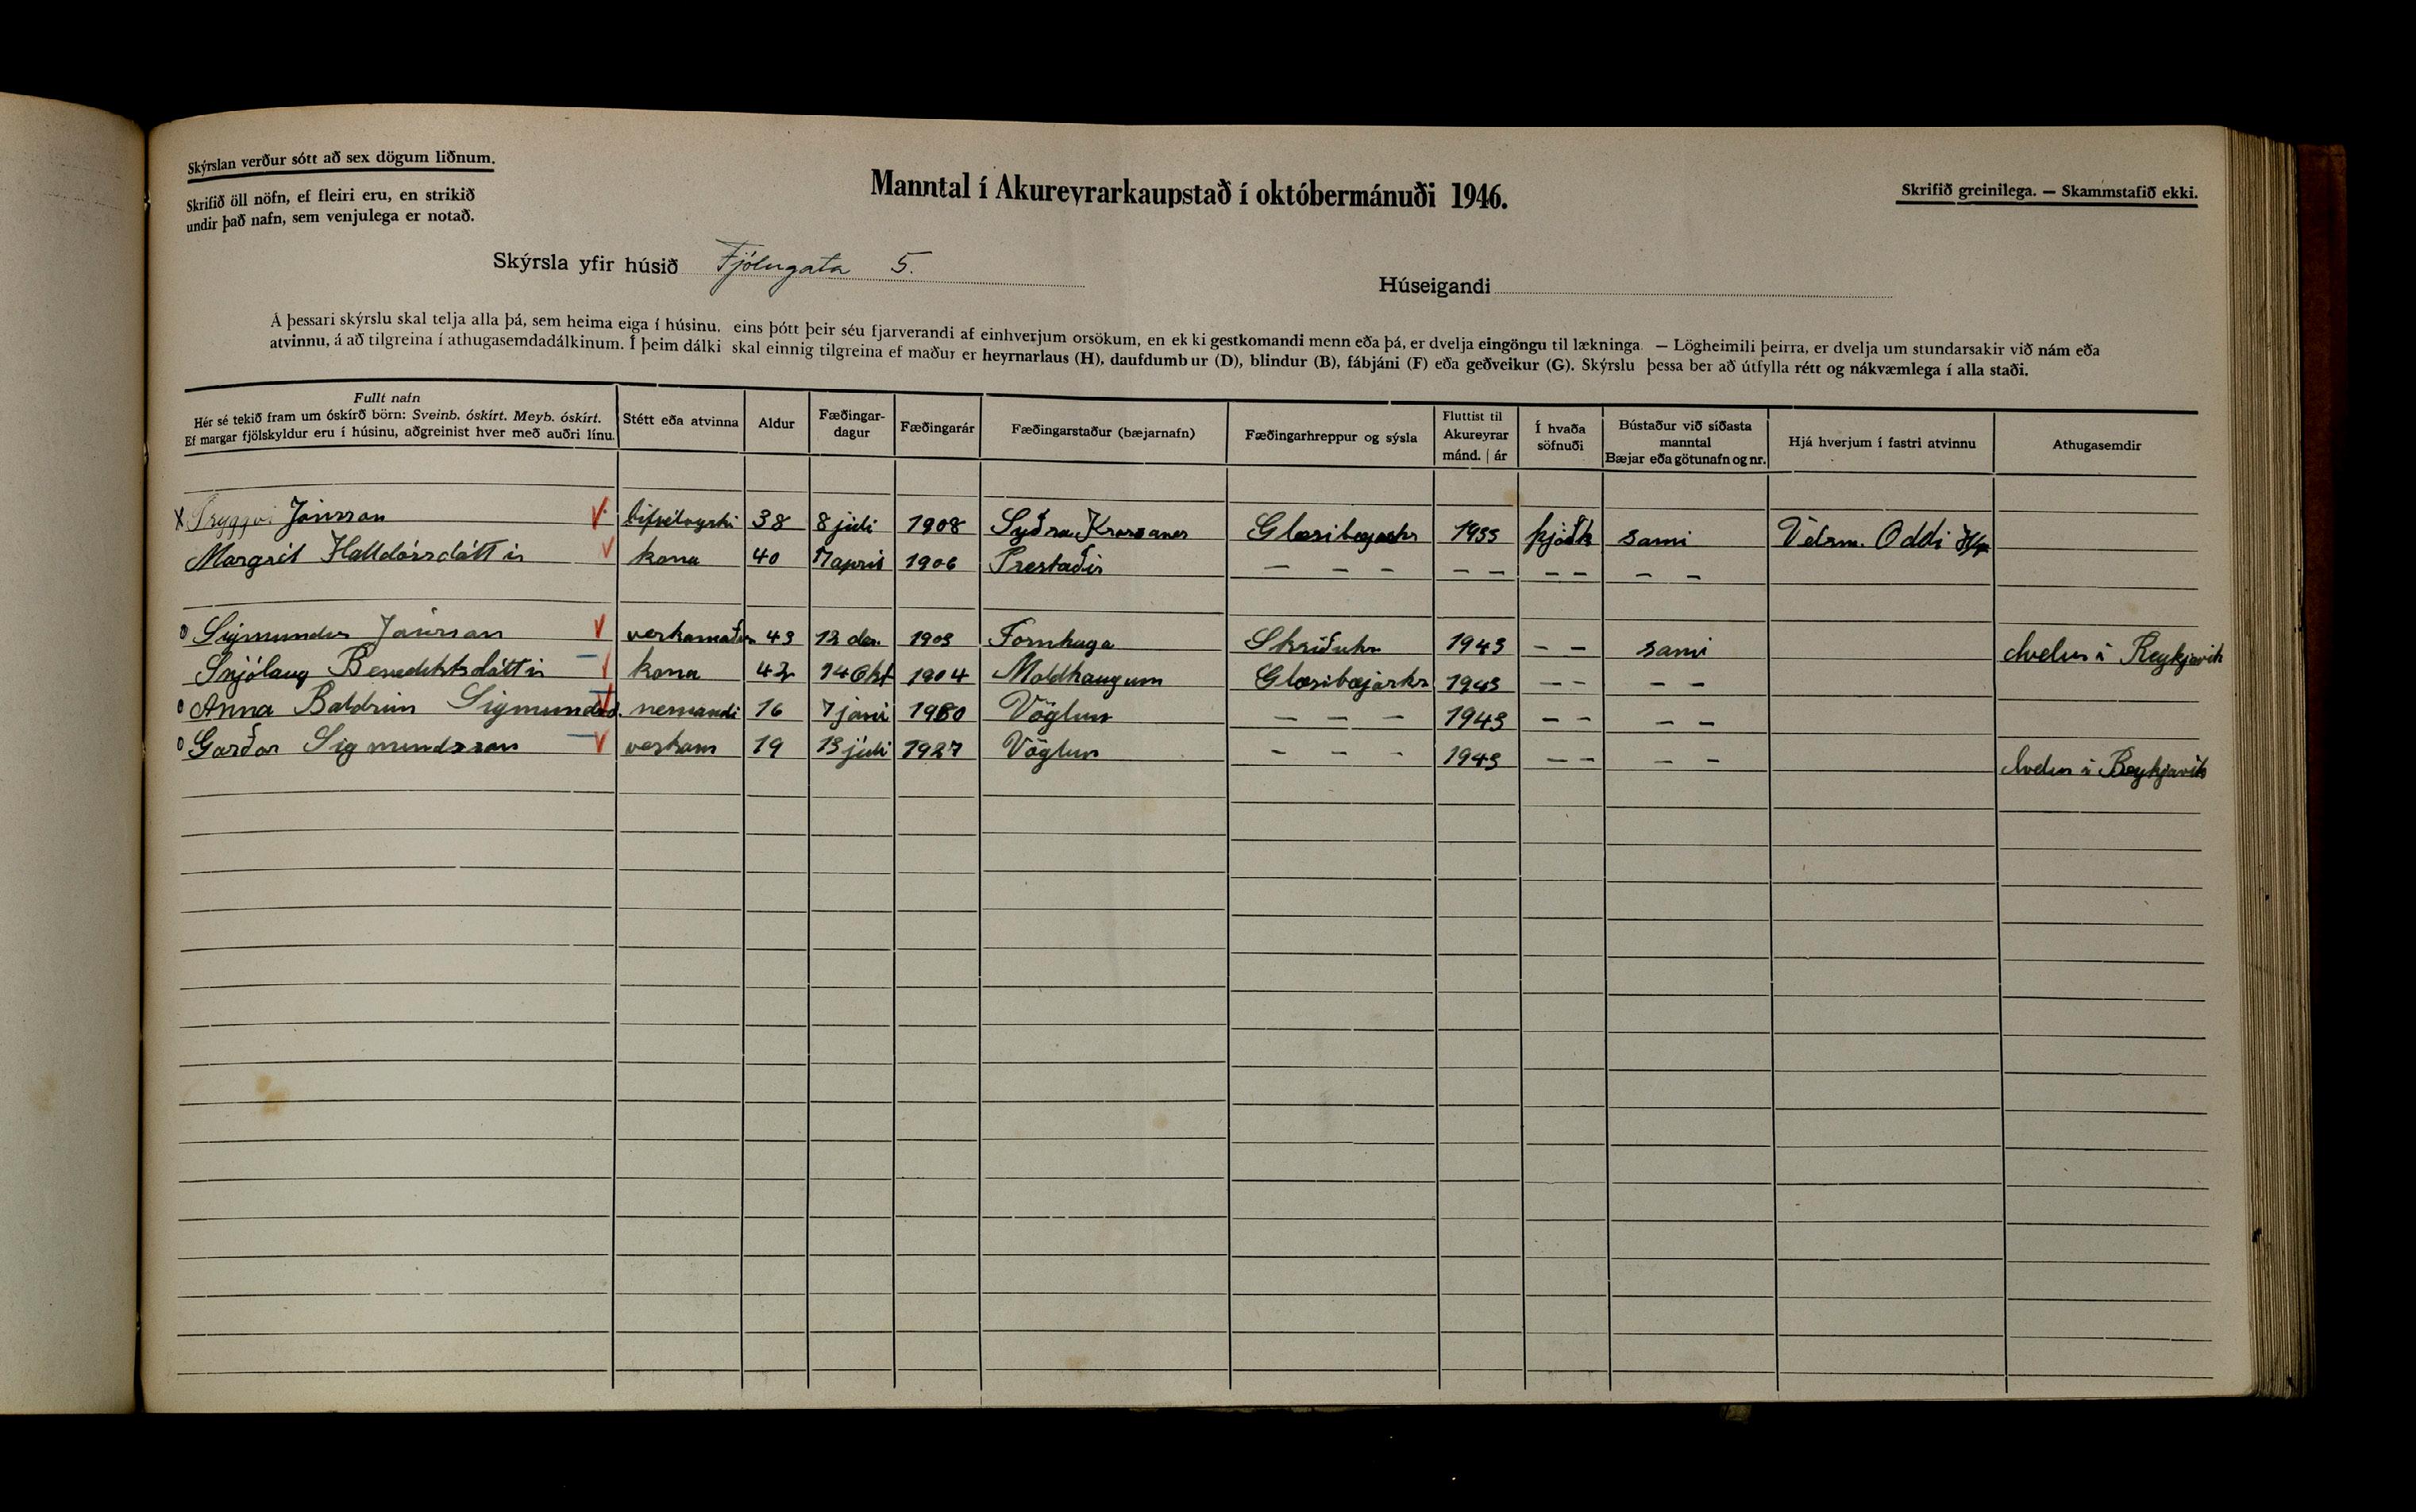 Skýrslan verður sótt að sex dögum liðnum.
Skrifið öll nöfn, ef fleiri eru, en strikið
undir það nafn, sem venjulega er notað.
Manntal í Akureyrarkaupstað í októbermánuði 1946.
Skrifið greinilega. — Skammstafið ekki.
Skýrsla yfir húsið Fjólugata 5.
Húseigandi
Á þessari skýrslu skal telja alla þá, sem heima eiga í húsinu, eins þótt þeir séu fjarverandi af einhverjum orsökum, en ekki gestkomandi menn eða þá, er dvelja eingöngu til lækninga. — Lögheimili þeirra, er dvelja um stundarsakir við nám eða
atvinnu, á að tilgreina í athugasemdadálkinum. Í þeim dálki skal einnig tilgreina ef maður er heyrnarlaus (H), daufdumbur (D), blindur (B), fábjáni (F) eða geðveikur (G). Skýrslu þessa ber að útfylla rétt og nákvæmlega í alla staði.
Fullt nafn
Hér sé tekið fram um óskírð börn: Sveinb. óskírt. Meyb. óskírt.
Ef margar fjölskyldur eru í húsinu, aðgreinist hver með auðri línu.
Stétt eða atvinna
Aldur
Fæðingar-
dagur
Fæðingarár
Fæðingarstaður (bæjarnafn)
Fæðingarhreppur og sýsla
Fluttist til
Akureyrar
mánd. | ár
Í hvaða
söfnuði
Bústaður við síðasta
manntal
Bæjar eða götunafn og nr.
Hjá hverjum í fastri atvinnu
Athugasemdir
x Tryggvi Jónsson V 38 8 júli 1908 Syðra Krossanes Glæsibæjarhr 1933 þjóðk sami Vélsm. Oddi H/f
Margrét Halldórsdóttir V kona 40 7 april 1906 — — — — — — — — —
o Sigmundur Jónsson V verkamaður 43 12 des. 1903 Fornhaga Skriðuhr 1943 — — sami dvelur í Reykjavík
Snjólaug Benediktsdóttir V kona 42 14 Okt 1904 Moldhaugum Glæsibæjarhr 1943 — — — —
o Anna Baldrún Sigmundsd. V nemandi 16 7 júni 1930 Vöglum — — — 1943 — — — —
o Garðar Sigmundsson V verkam 19 13 júli 1927 Vöglum — — — 1943 — — — — dvelur í Reykjavík